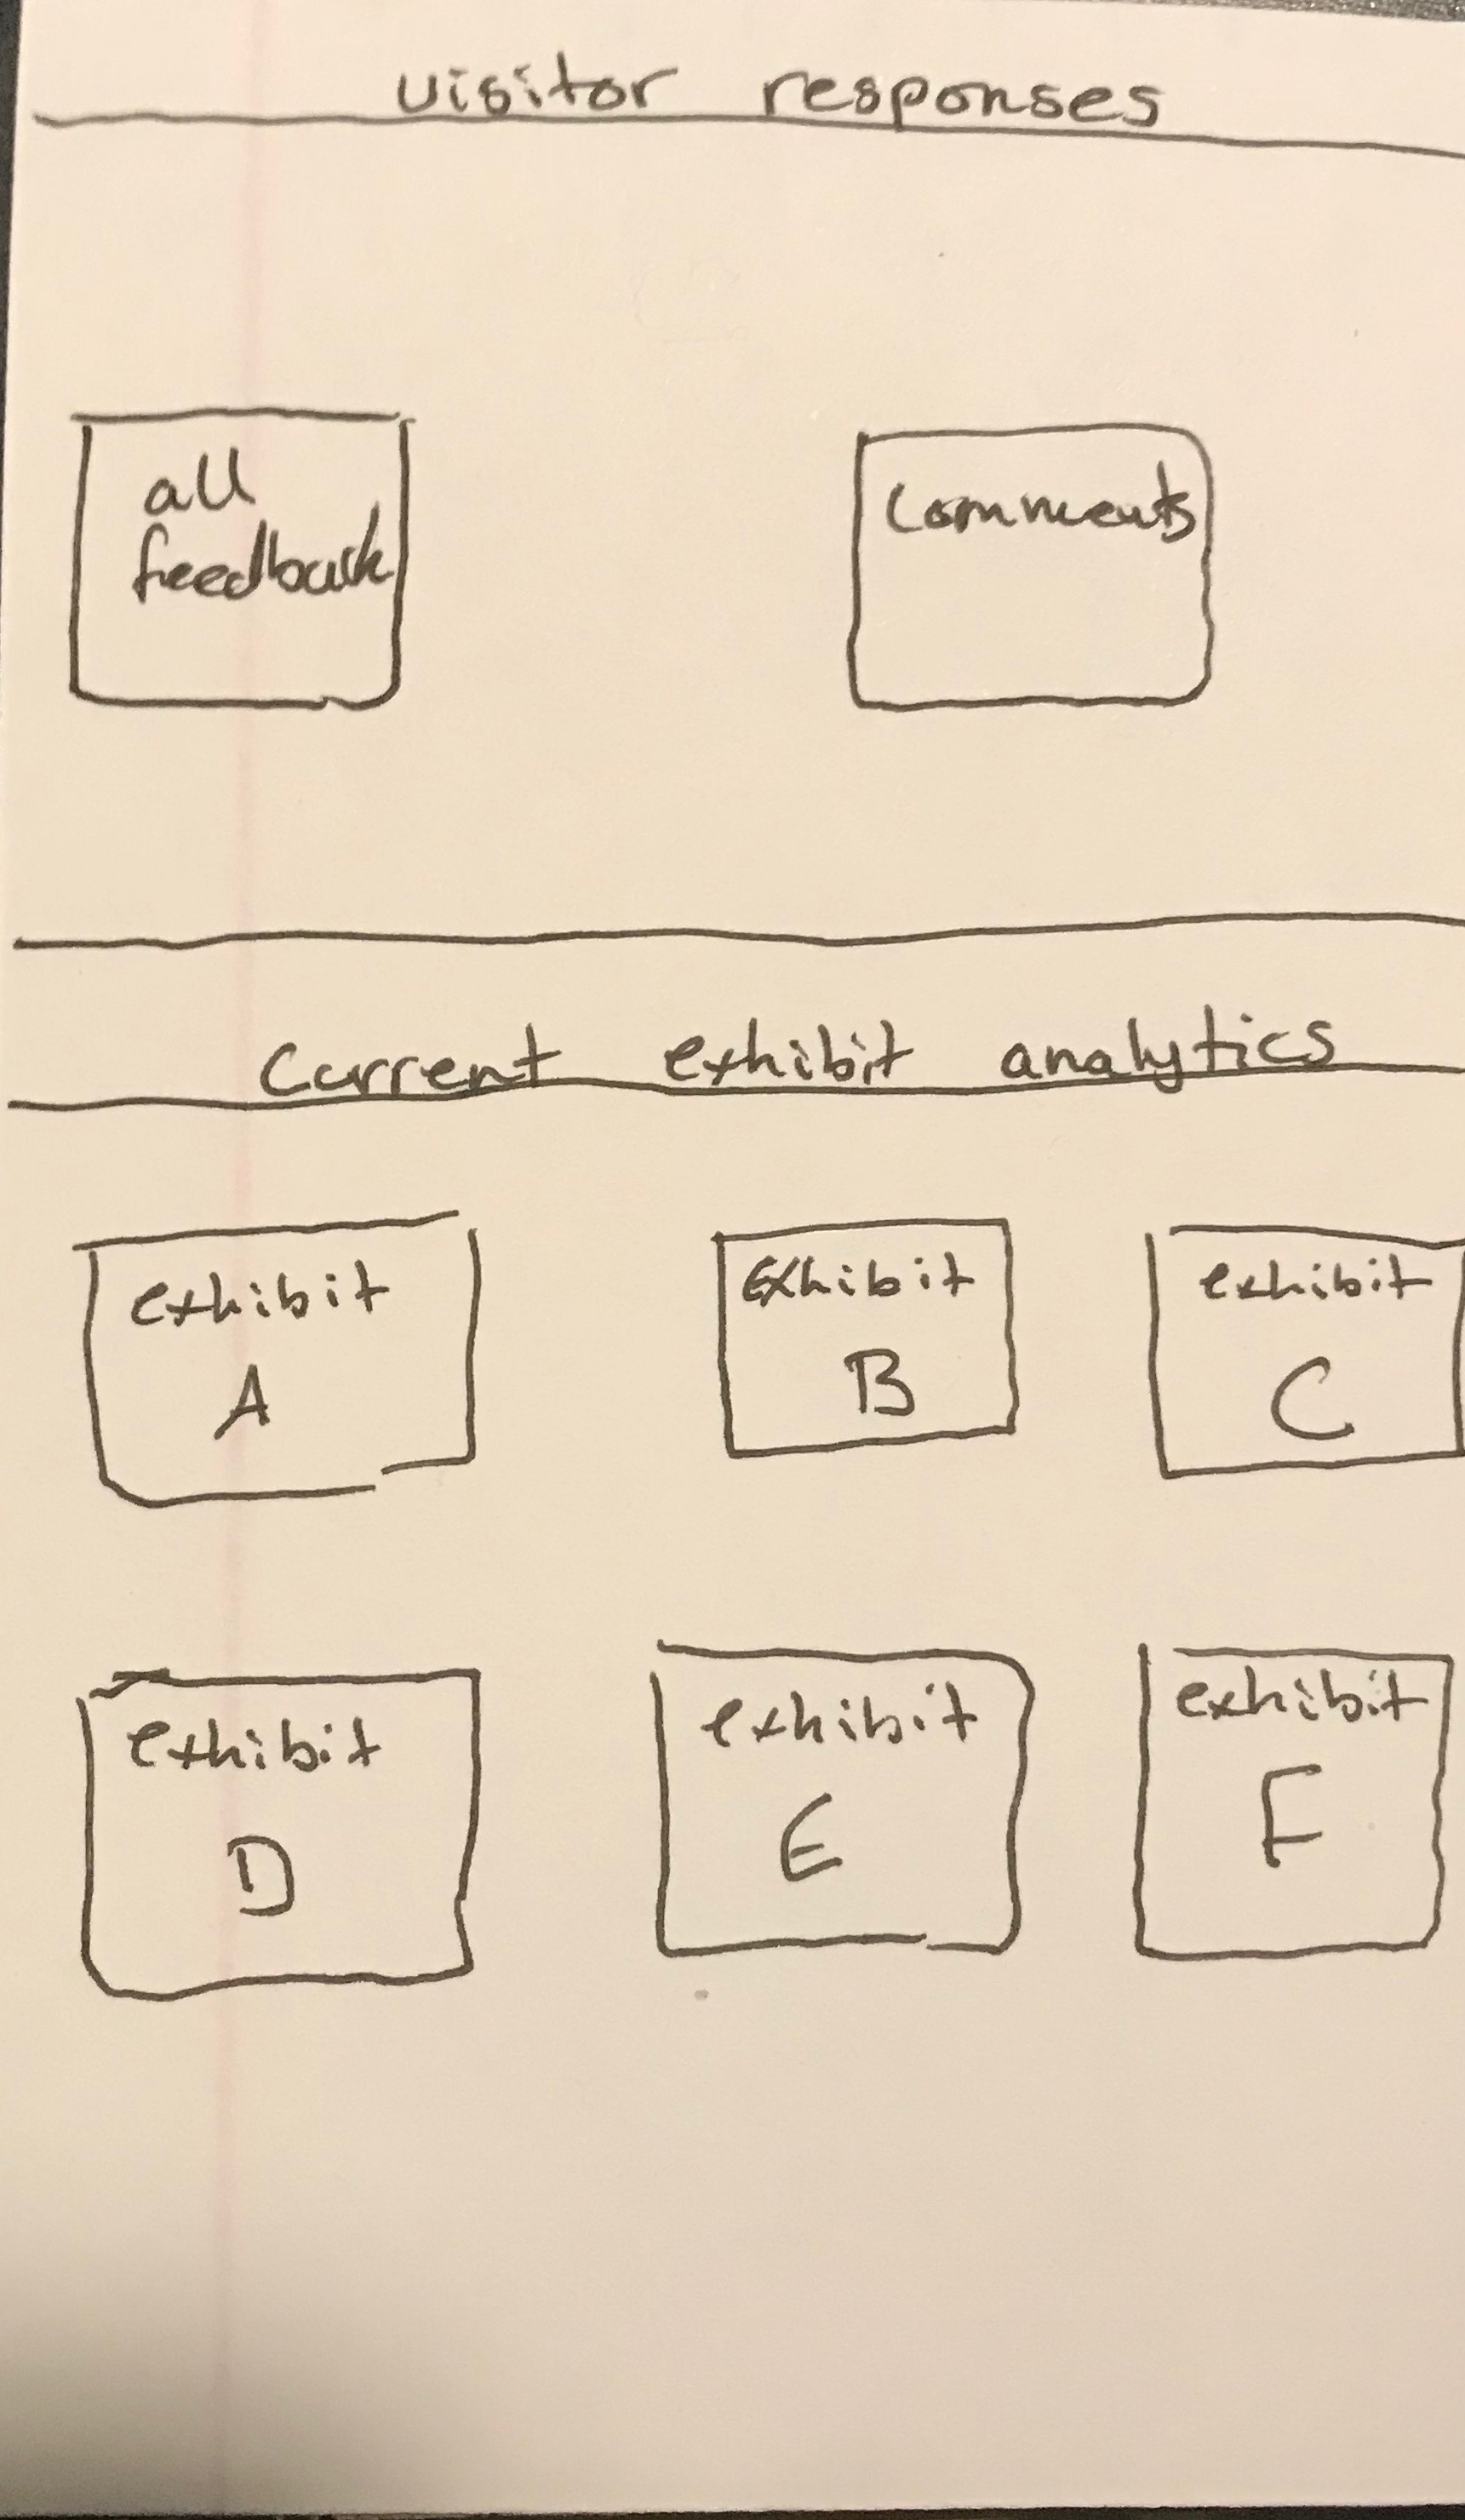 visitor responses
all
feedback
Comments
Current exhibit analytics
exhibit
A
Exhibit
B
exhibit
C
exhibit
D
exhibit
E
exhibit
F